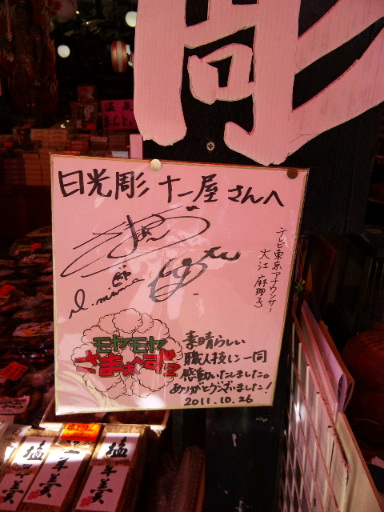 彫
日光彫 十一屋さんへ
テレビ東京アナウンサー
大江麻理子
モヤモヤ
さまぁ~ず2
素晴らしい
職人技に一同
感動いたしました。
ありがとうございました!
2011.10.26
塩羊羹
塩羊羹